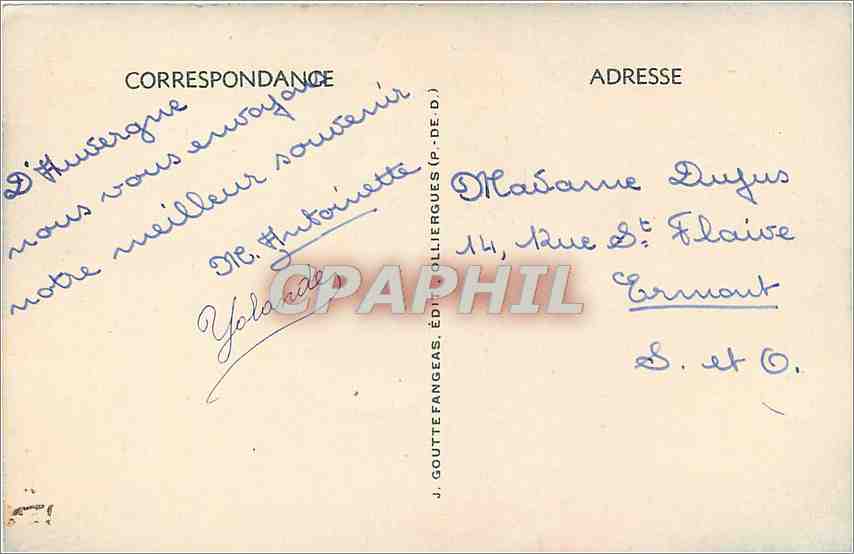 CORRESPONDANCE
D'Auvergne
nous vous envoyons
notre meilleur souvenir
M. Antoinette
Yolande
J. GOUTTEFANGEAS, ÉDIT. OLLIERGUES (P.-DE-D.)
ADRESSE
Madame Dufus
14, Rue St Flaive
Ermont
S. et O.
CPAPHIL